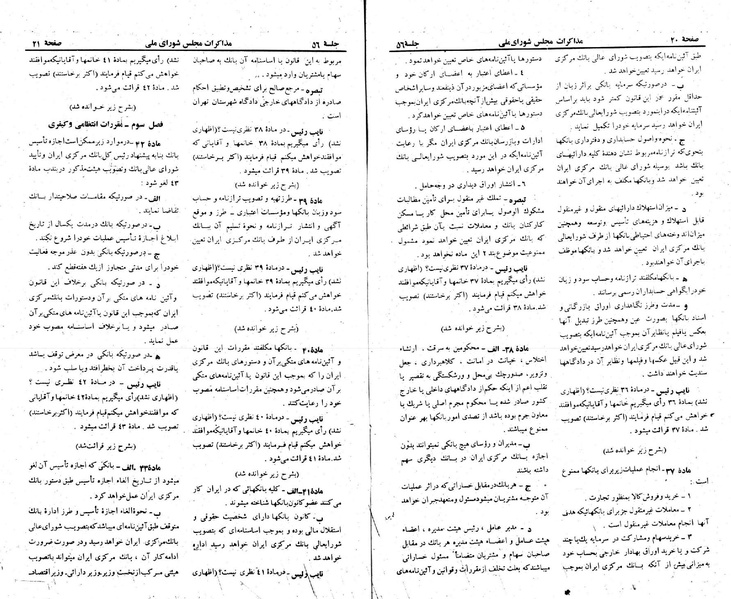 صفحهٔ ۲۰
مذاکرات مجلس شورای ملی
جلسهٔ ۵۶
طبق آئین‌نامه‌ایکه بتصویب شورای عالی بانک مرکزی
ایران خواهد رسید تعیین خواهد شد .
ب - درصورتیکه سرمایه بانکی براثر زیان از
حداقل مقرر در این قانون کمتر شود باید براساس
آئین‌نامه‌ایکه در اینمورد بتصویب شورایعالی بانک مرکزی
ایران خواهد رسید سرمایه خود را تکمیل نماید .
ج - نحوه واصول حسابداری و دفترداری بانکها
بنحوی که ترازنامه مربوط نشان دهنده کلیه دارائیهای
بانک باشد بوسیله شورای عالی بانک مرکزی ایران
تعیین خواهد شد و بانکها مکلف به اجرای آن خواهند
بود .
د - میزان استهلاک دارائیهای منقول و غیرمنقول
قابل استهلاک و هزینه‌های تأسیس و توسعه وهمچنین
میزان اندوخته‌های احتیاطی بانکها از طرف شورایعالی
بانک مرکزی ایران تعیین خواهد شد و بانکها موظف
باجرای آن خواهند بود .
ه - بانکها مکلفند ترازنامه وحساب سود و زیان
خود را بگواهی حسابداران رسمی برسانند .
و - مدت وطرز نگاهداری اوراق بازرگانی و
اسناد بانکها بصورت عین وهمچنین طرز تبدیل آنها
بعکس یا فیلم یا نظایر آن بموجب آئین‌نامه‌ایکه بتصویب
شورای عالی بانک مرکزی ایران خواهد رسید تعیین خواهد
شد و این قبیل عکسها و فیلمها و نظایر آن در دادگاهها
سندیت خواهند داشت .
نایب رئیس - درمادهٔ ۳۶ نظری نیست؟ (اظهاری
نشد) رأی میگیریم بمادهٔ ۳۶ خانمها و آقایانیکه موافقند
خواهش میکنم قیام فرمایند (اکثر برخاستند) تصویب
شد . مادهٔ ۳۷ قرائت میشود .
(بشرح زیر خوانده شد)
مادهٔ ۳۷- انجام عملیات زیر برای بانکها ممنوع
است :
۱ - خرید و فروش کالا بمنظور تجارت .
۲ - معاملات غیر منقول جز برای بانکهائیکه هدف
آنها انجام معاملات غیرمنقول است .
۳ - خرید سهام و مشارکت در سرمایه یک یا چند
شرکت و یا خرید اوراق بهادار خارجی بحساب خود
به میزانی بیش از آنکه بانک مرکزی ایران بموجب
دستورها یا آئین‌نامه‌های خاص تعیین خواهد نمود .
۴ - اعطای اعتبار به اعضای ارکان خود و
مؤسساتی که اعضای مزبور در آن ذینفعند وسایر اشخاص
حقیقی یا حقوقی بیش از آنچه بانک مرکزی ایران بموجب
دستورها یا آئین‌نامه‌های خاص تعیین خواهد کرد .
۵ - اعطای اعتبار باعضای ارکان یا رؤسای
ادارات و بازرسان بانک مرکزی ایران مگر با رعایت
آئین‌نامه‌ایکه در این مورد بتصویب شورایعالی بانک
مرکزی ایران خواهد رسید .
۶ - انتشار اوراق دیداری در وجه حامل .
تبصره - تملک غیر منقول برای تأمین مطالبات
مشکوک الوصول یا برای تأمین محل کار یا مسکن
کارکنان بانک و معاملات نسبت بآن طبق شرائطی
که بانک مرکزی ایران تعیین خواهد نمود مشمول
ممنوعیت موضوع بند ۲ این ماده نخواهد بود .
نایب رئیس - درمادهٔ ۳۷ نظری نیست؟ (اظهاری
نشد) رأی میگیریم بمادهٔ ۳۷ خانمها و آقایانیکه موافقند
خواهش میکنم قیام فرمایند (اکثر برخاستند) تصویب
شد . مادهٔ ۳۸ قرائت میشود .
(بشرح زیر خوانده شد)
مادهٔ ۳۸- الف - محکومین به سرقت ، ارتشاء
اختلاس ، خیانت در امانت ، کلاهبرداری ، جعل
وتزویر، صدورچک بی‌محل و ورشکستگی به تقصیر یا
تقلب اعم از اینکه حکم از دادگاههای داخلی یا خارج
کشور صادر شده یا محکوم مجرم اصلی یا شریک یا
معاون جرم بوده باشد از تصدی امور بانکها بهر عنوان
ممنوع میباشند .
ب - مدیران و رؤسای هیچ بانکی نمیتوانند بدون
اجازه بانک مرکزی ایران در بانک دیگری سهم
داشته باشند
ج - هر بانک در مقابل خساراتی که در اثر عملیات
آن متوجه مشتریان میشود مسئول و متعهد جبران خواهد
بود .
د - مدیر عامل ، رئیس هیئت مدیره ، اعضاء
هیئت عامل و اعضاء هیئت مدیره هر بانک در مقابل
صاحبان سهام و مشتریان متضامناً مسئول خساراتی
میباشند که بعلت تخلف از مقررات و قوانین و آئین‌نامه‌های
جلسهٔ ۵۶
مذاکرات مجلس شورای ملی
صفحهٔ ۲۱
مربوط به این قانون یا اساسنامه آن بانک به صاحبان
سهام یا مشتریان وارد میشود .
تبصره - مرجع صالح برای تشخیص و تطبیق احکام
صادره از دادگاههای خارجی دادگاه شهرستان تهران
است .
نایب رئیس - درمادهٔ ۳۸ نظری نیست؟ (اظهاری
نشد) رأی میگیریم بمادهٔ ۳۸ خانمها و آقایانی که
موافقند خواهش میکنم قیام فرمایند (اکثر برخاستند)
تصویب شد . مادهٔ ۳۹ قرائت میشود .
(بشرح زیر خوانده شد)
مادهٔ ۳۹ - طرز تهیه و تصویب ترازنامه و حساب
سود و زیان بانکها و مؤسسات اعتباری - طرز و موقع
آگهی و انتشار ترازنامه و نحوه تسلیم آن بانک
مرکزی ایران از طرف بانک مرکزی ایران تعیین
خواهد شد .
نایب رئیس - درمادهٔ ۳۹ نظری نیست؟ (اظهاری
نشد) رأی میگیریم بمادهٔ ۳۹ خانمها و آقایانیکه موافقند
خواهش میکنم قیام فرمایند (اکثر برخاستند) تصویب
شد. مادهٔ ۴۰ قرائت میشود .
(بشرح زیر خوانده شد)
مادهٔ ۴۰ - بانکها مکلفند مقررات این قانون
و آئین‌نامه‌های متکی برآن و دستورهای بانک مرکزی
ایران را که بموجب این قانون یا آئین‌نامه‌های متکی
برآن صادر می‌شود و همچنین مقررات اساسنامه مصوب
خود را رعایت کنند .
نایب رئیس - درمادهٔ ۴۰ نظری نیست؟ (اظهاری
نشد) رأی میگیریم بمادهٔ ۴۰ خانمها و آقایانیکه موافقند
خواهش میکنم قیام فرمایند (اکثر برخاستند) تصویب
شد . مادهٔ ۴۱ قرائت میشود .
(بشرح زیر خوانده شد)
مادهٔ ۴۱-الف- کلیه بانکهائی که در ایران کار
می‌کنند عضو کانون بانکها شناخته میشوند .
ب - کانون بانکها دارای شخصیت حقوقی و
استقلال مالی بوده و بموجب اساسنامه‌ای که بتصویب
شورایعالی بانک مرکزی ایران خواهد رسید اداره
خواهد شد .
نایب رئیس - درمادهٔ ۴۱ نظری نیست؟ (اظهاری
نشد) رأی میگیریم بمادهٔ ۴۱ خانمها و آقایانیکه موافقند
خواهش می‌کنم قیام فرمایند (اکثر برخاستند) تصویب
شد . مادهٔ ۴۲ قرائت میشود .
(بشرح زیر خوانده شد)
فصل سوم - مقررات انتظامی و کیفری
مادهٔ ۴۲ - در موارد زیر ممکن است اجازه تأسیس
بانک بنا به پیشنهاد رئیس کل بانک مرکزی ایران و تأیید
شورای عالی بانک و تصویب هیئت مذکور در بند ب مادهٔ
۴۳ لغو شود :
الف - در صورتیکه مقامات صلاحیتدار بانک
تقاضا نماید .
ب - در صورتیکه بانک در مدت یکسال از تاریخ
ابلاغ اجازهٔ تأسیس عملیات خود را شروع نکند .
ج - در صورتیکه بانکی بدون عذر موجه فعالیت
خود را برای مدتی متجاوز از یک هفته قطع کند .
د - در صورتیکه بانکی برخلاف این قانون
و آئین نامه های متکی برآن و دستورات بانک مرکزی
ایران که بموجب این قانون یا آئین‌نامه‌های متکی برآن
صادر میشود و یا برخلاف اساسنامه مصوب خود
عمل نماید .
ه - در صورتیکه بانکی در معرض توقف باشد
یا قدرت پرداخت آن بخطر افتد ویا سلب شود .
نایب رئیس - در مادهٔ ۴۲ نظری نیست ؟
(اظهاری نشد) رأی میگیریم بمادهٔ ۴۲ خانمها و آقایانی
که موافقند خواهش میکنم قیام فرمایند (اکثر برخاستند)
تصویب شد . مادهٔ ۴۳ قرائت میشود .
(بشرح زیر قرائت شد)
مادهٔ ۴۳ - الف - بانکی که اجازه تأسیس آن لغو
میشود از تاریخ الغاء اجازه تأسیس طبق دستور بانک
مرکزی ایران عمل خواهد کرد .
ب - نحوهٔ الغاء اجازه تأسیس و طرز ادارهٔ بانک
متوقف طبق آئین‌نامه‌ای میباشد که بتصویب شورای عالی
بانک مرکزی ایران خواهد رسید و در صورت ضرورت
ادامه کار آن ، بانک مرکزی ایران میتواند با تصویب
هیئتی مرکب از نخست وزیر، وزیر دارائی ، وزیر اقتصاد،